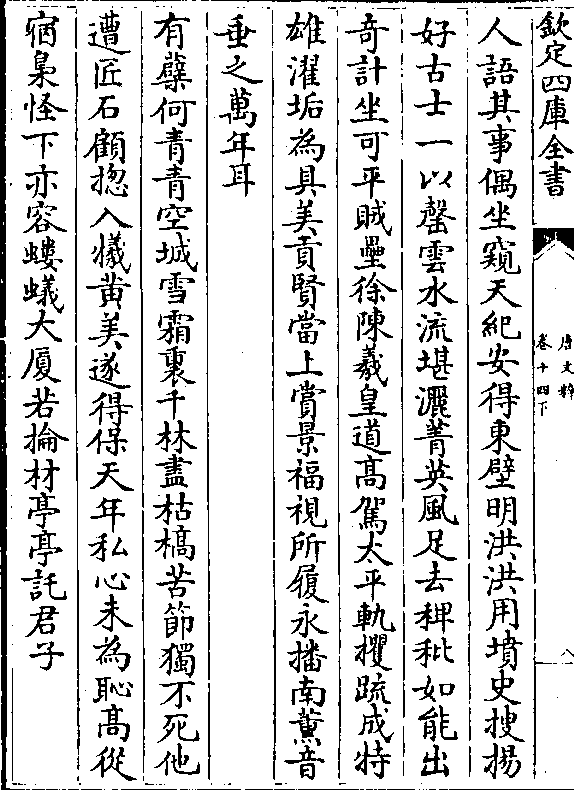 欽定四庫全書
唐文粹
卷十四下
八
人語其事偶坐窺天紀安得東壁明洪洪用墳史搜揚
好古士一以罄雲水流堪灑菁英風足去稗秕如能出
奇計坐可平賊壘徐陳羲皇道高駕太平軌攫疏成特
雄濯垢為具美貢賢當上賞景福視所履永播南薰音
垂之萬年耳
有蘖何青青空城雪霜裏千林盡枯槁苦節獨不死他
遭匠石顧揔入犧黃美遂得保天年私心未為恥高從
宿梟怪下亦容螻蟻大厦若掄材亭亭託君子